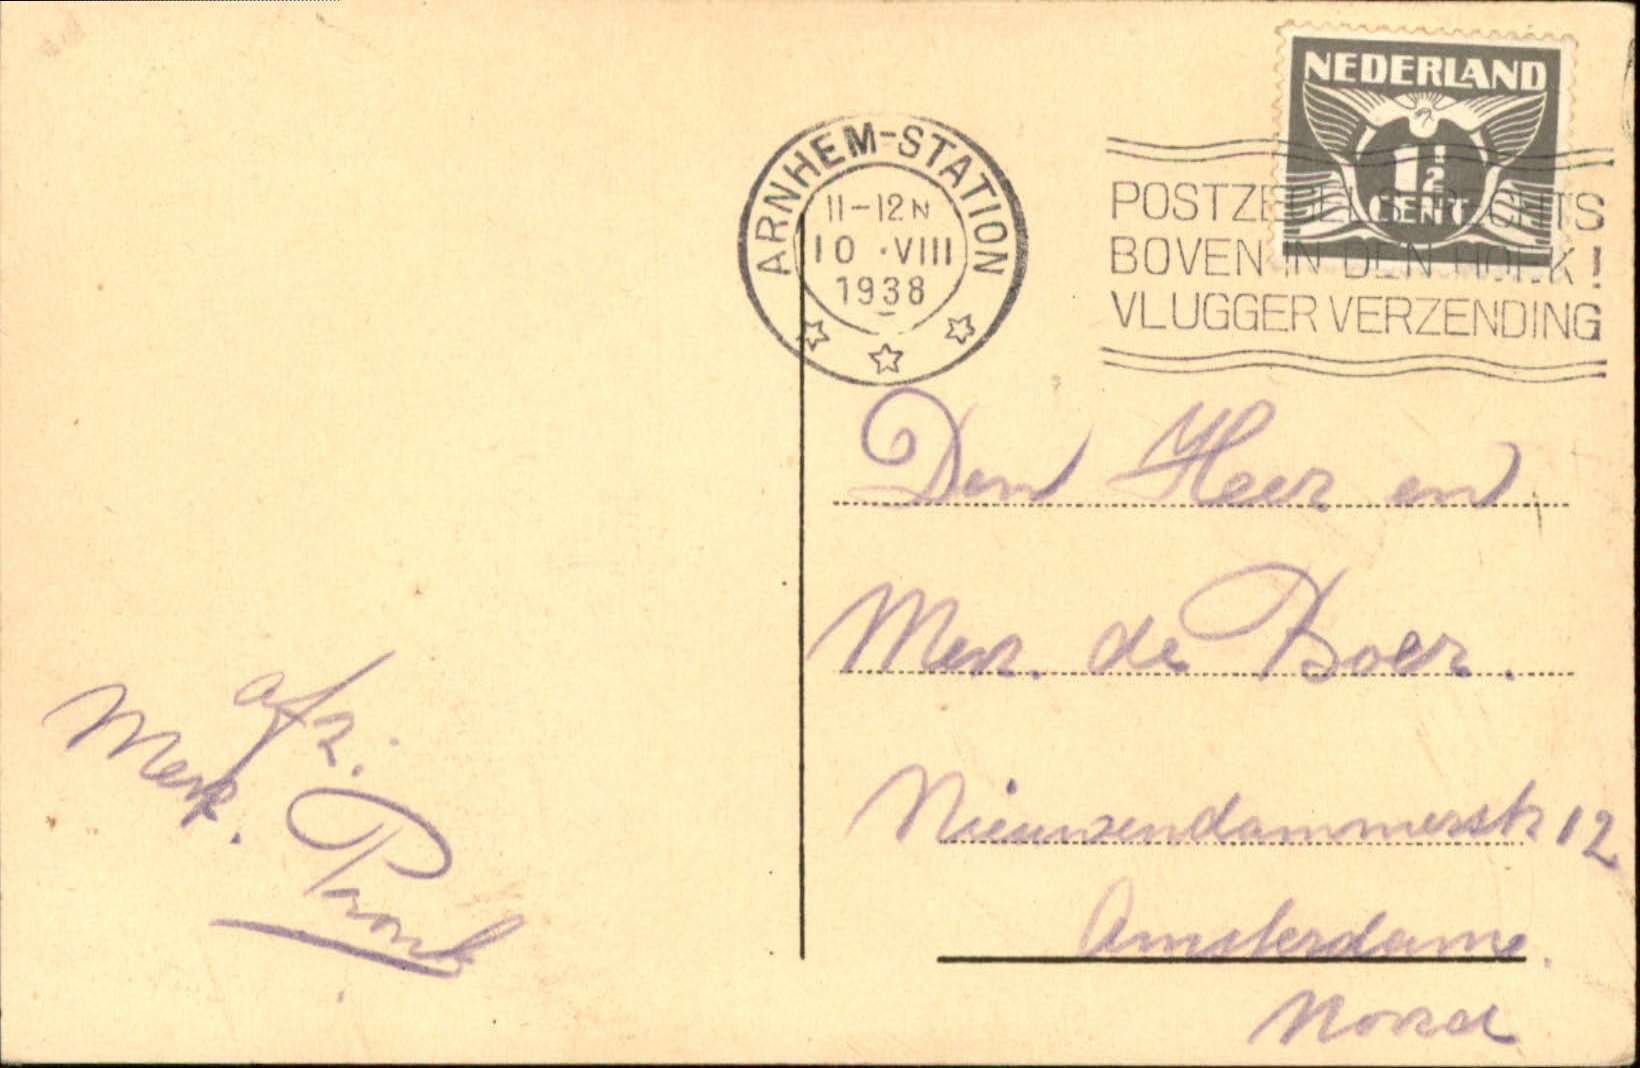 NEDERLAND
1½
CENT
ARNHEM-STATION
11-12N
10 ·VIII
1938
POSTZEGEL RECHTS
BOVEN IN DEN HOEK!
VLUGGER VERZENDING
Den Heer en
Mev. de Boer.
Nieuwendammerstr 12
Amsterdam.
Noord
afz.
Mev. Pronk